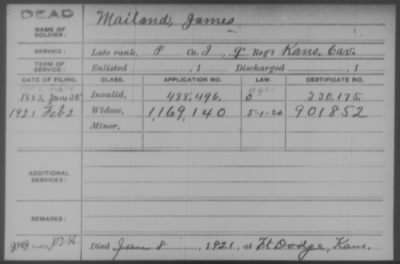 DEAD
NAME OF SOLDIER: Mailand, James
SERVICE: Late rank, P Co. I, 9 Reg't Kans. Cav.
TERM OF SERVICE: Enlisted , 1 Discharged , 1
DATE OF FILING. CLASS. APPLICATION NO. LAW. CERTIFICATE NO.
1883, Jan 20 Invalid, 488,496. 330,175.
1921 Feb 2 Widow, 1,169,140 5-1-20 901852
Minor,
ADDITIONAL SERVICES:
REMARKS:
Died Jan 8, 1921, at Ft Dodge, Kans.